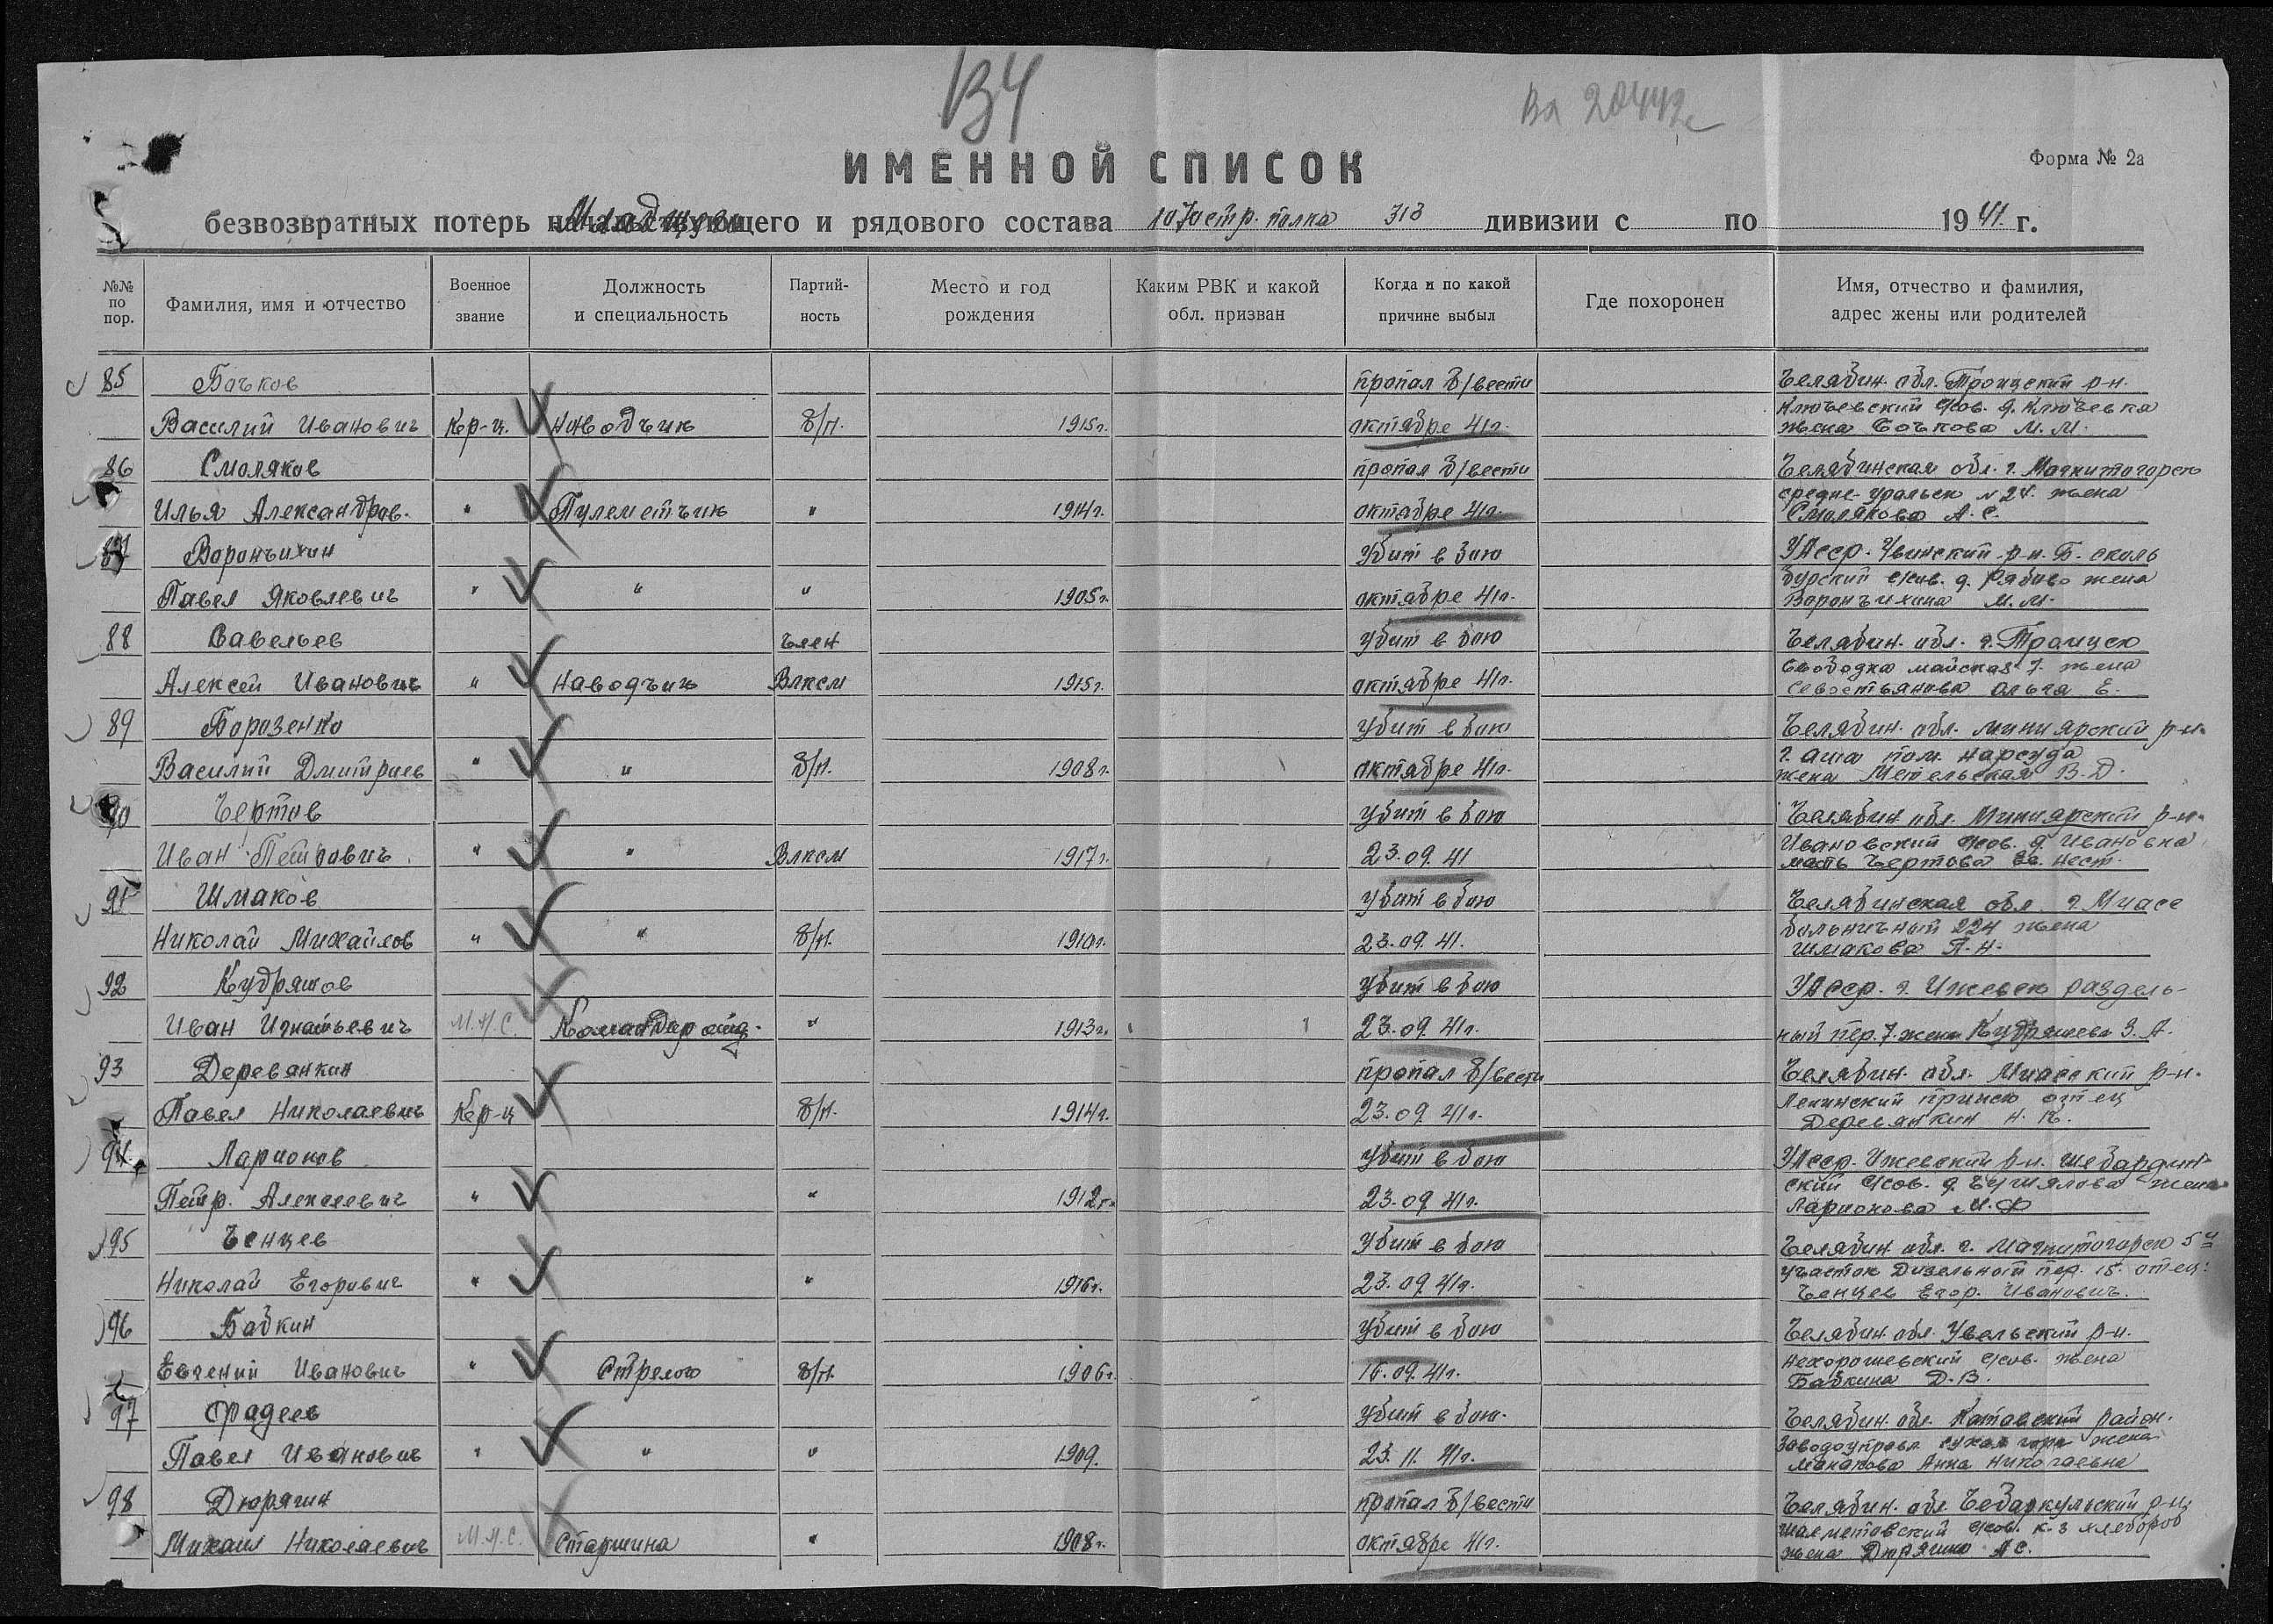 134
Вх 20442с
ИМЕННОЙ СПИСОК
Форма № 2а
безвозвратных потерь начальствующего и рядового состава 1070 стр. полка 313 дивизии с по 1941 г.
Младшего
№№ по пор. Фамилия, имя и отчество Военное звание Должность и специальность Партийность Место и год рождения Каким РВК и какой обл. призван Когда и по какой причине выбыл Где похоронен Имя, отчество и фамилия, адрес жены или родителей
85 Бочков пропал б/вести Челябин. обл. Троицкий р-н.
Ключевский с/сов. д. Ключевка
Василий Иванович Кр-ц. Наводчик б/п. 1915г. октябре 41г. жена Бочкова М.М.
86 Смоляков пропал б/вести Челябинская обл. г. Магнитогорск
средне-уральск №24. жена
Илья Александров. " Пулеметчик " 1914г. октябре 41г. Смолякова А.С.
87 Воронъихин Убит в бою УАССР. Увинский р-н. Б.
с/сов. д. Рябово жена
Павел Яковлевич " " " 1905г. октябре 41г. Воронъихина М.М.
88 Савельев член Убит в бою Челябин. обл. г. Троицск
слободка майская 7. жена
Алексей Иванович " Наводчик Влксм 1915г. октябре 41г. Севостьянова Ольга Е.
89 Борозенко Убит в бою Челябин. обл. Миниярский р-н.
г. Аша пом. нарсуда
Василий Дмитриев " " б/п. 1908г. октябре 41г. жена Метельская В.Д.
90 Чертов Убит в бою Челябин обл. Миниярский р-н.
Ивановский с/сов. д. Ивановка
Иван Петрович " " Влксм 1917г. 23.09.41 мать Чертова Ев. Нест.
91 Шмаков Убит в бою Челябинская обл. г. Миасс
больничный 224 жена
Николай Михайлов " " б/п. 1910г. 23.09.41. Шмакова П.Н.
92 Кудряшов Убит в бою УАССР. г. Ижевск раздель-
Иван Игнатьевич М.Н.С. Командир отд. " 1913г. 23.09.41г. ный пер. 7. жена Кудряшева З.А.
93 Деревянкин пропал б/вести Челябин. обл. Миасский р-н.
Ленинский прииск отец
Павел Николаевич Кр-ц б/п. 1914г. 23.09.41г. Деревянкин Н.К.
94. Ларионов Убит в бою УАССР. Ижевский р-н.
ский с/сов. д. жена
Петр. Алексеевич " " 1912г. 23.09.41г. Ларионова М.Ф
95 Ченцев Убит в бою Челябин. обл. г. Магнитогорск 5й
участок Дизельный пер. 15. отец:
Николай Егорович " " 1916г. 23.09.41г. Ченцев Егор. Иванович.
96 Бабкин Убит в бою Челябин. обл. Увельский р-н.
Нехорошевский с/сов. жена
Евгений Иванович " Стрелок б/п. 1906г. 16.09.41г. Бабкина Д.В.
97 Фадеев Убит в бою. Челябин. обл. Катавский район.
Заводоупровл. жена
Павел Иванович " " " 1909. 23.11.41г. Манакова Анна Николаевна
98 Дюрягин пропал б/вести Челябин. обл. Чебаркульский р-н,
с/сов. к-з хлебороб
Михаил Николаевич М.Н.С. Старшина " 1908г. октябре 41г. жена Дюрягина А.С.